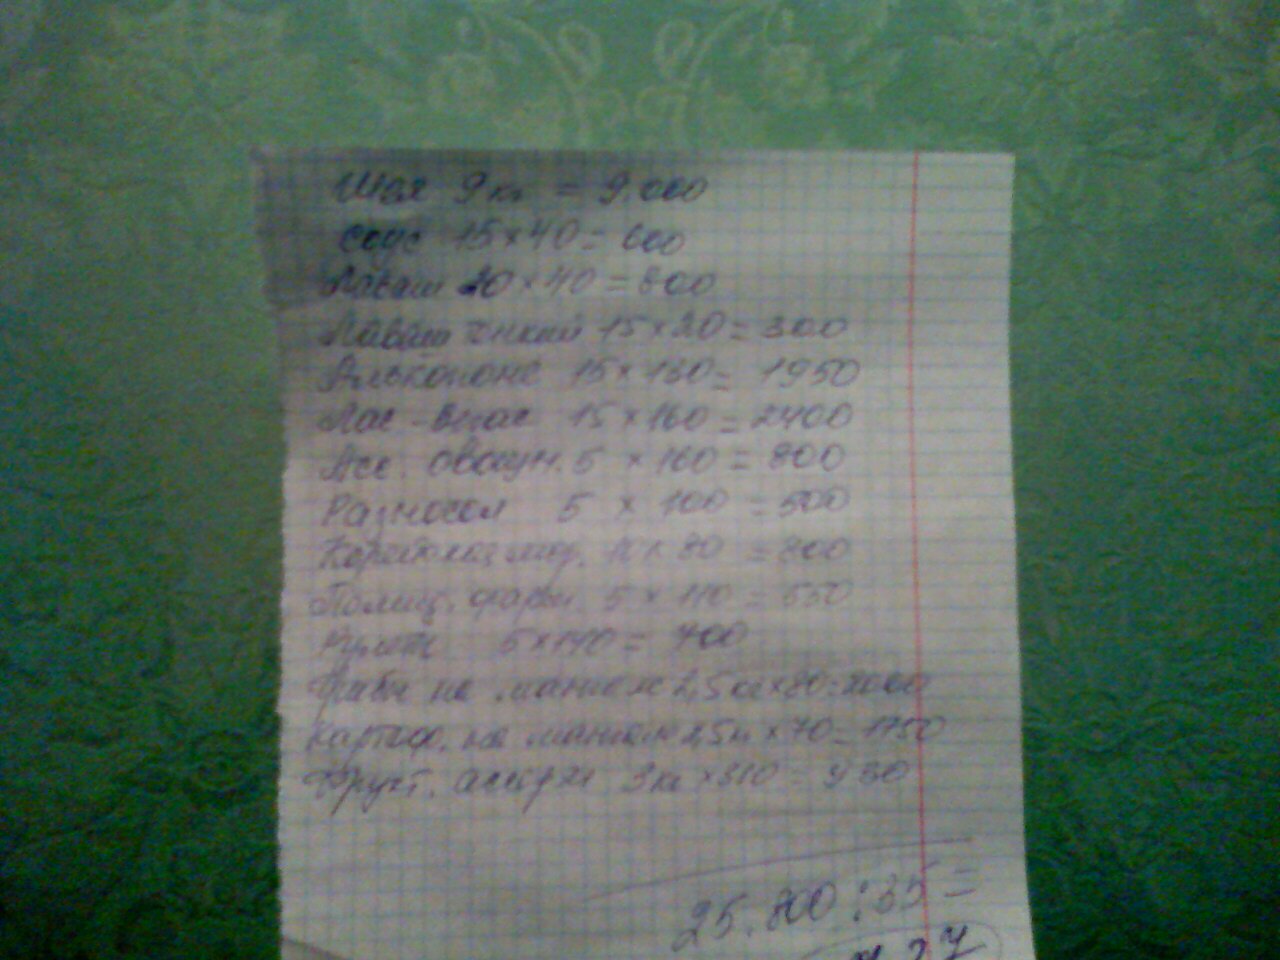 Шея 9 кг = 9.000
Соус 15 × 40 = 600
Лаваш 20 × 40 = 800
Лаваш тнкий 15 × 20 = 300
Алькопоне 15 × 130 = 1950
Лас-Вегас 15 × 160 = 2400
Асс. овощн. 5 × 160 = 800
Разносол 5 × 100 = 500
× 80 = 800
5 × 110 = 550
5 × 140 = 700
Грибы на мангале 2,5 кг × 80 = 2000
Картоф. на мангале 2,5 к × 70 = 1750
Фрукт. ассорти 3 кг × 310 = 930
25.800 : 35 =